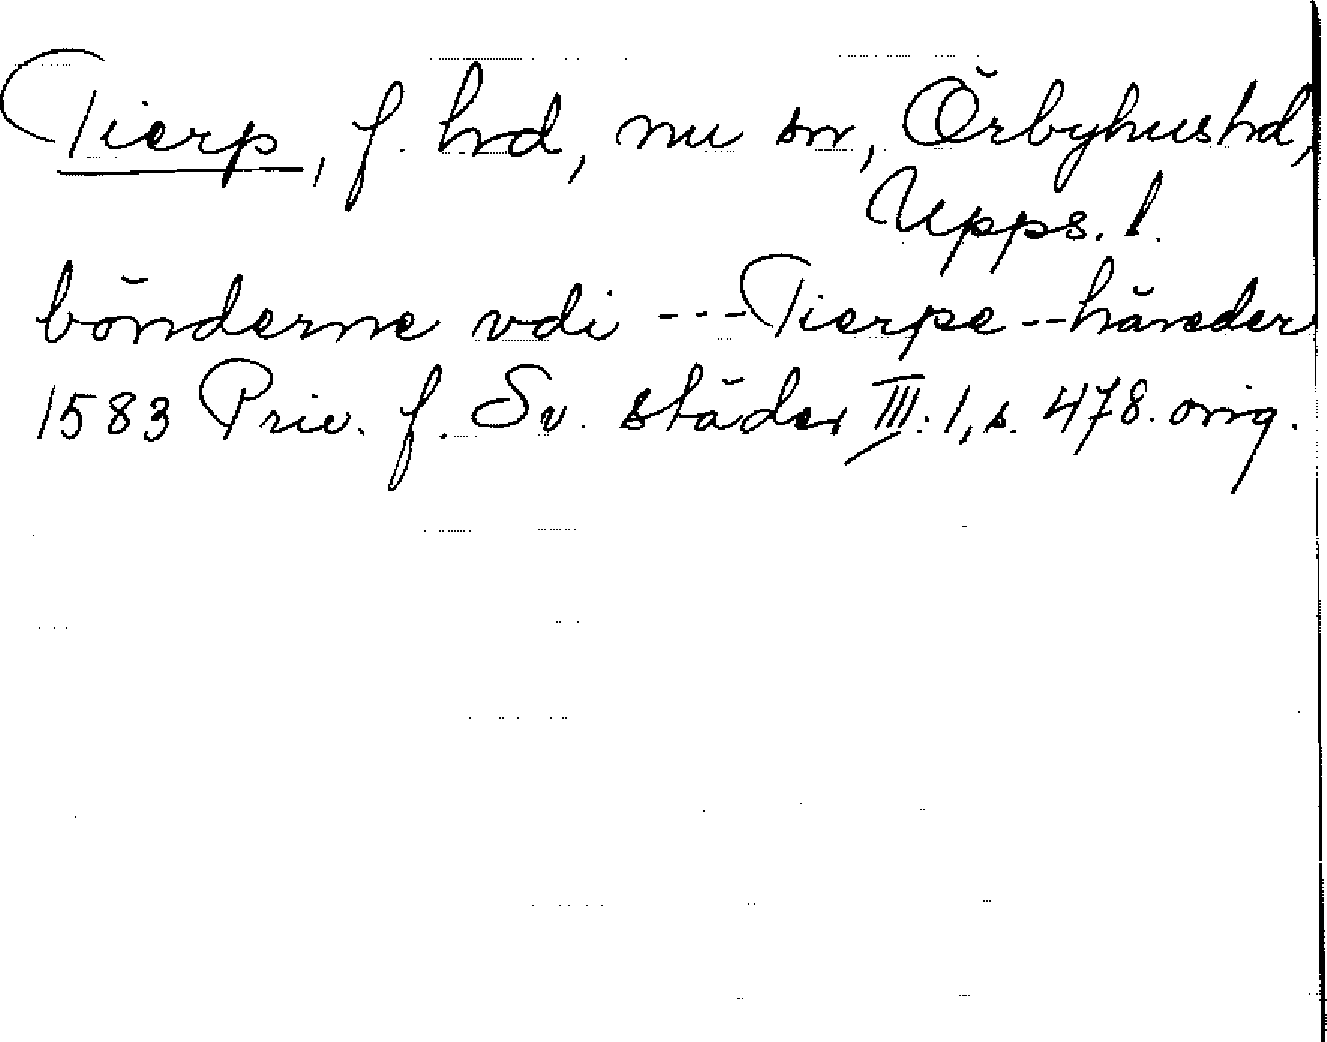 Tierp, f. hrd, nu sn, Örbyhus hd,
Upps. l.
bönderne vdi --- Tierpe -- häreder
1583 Priv. f. Sv. städer III: 1, s. 478. orig.